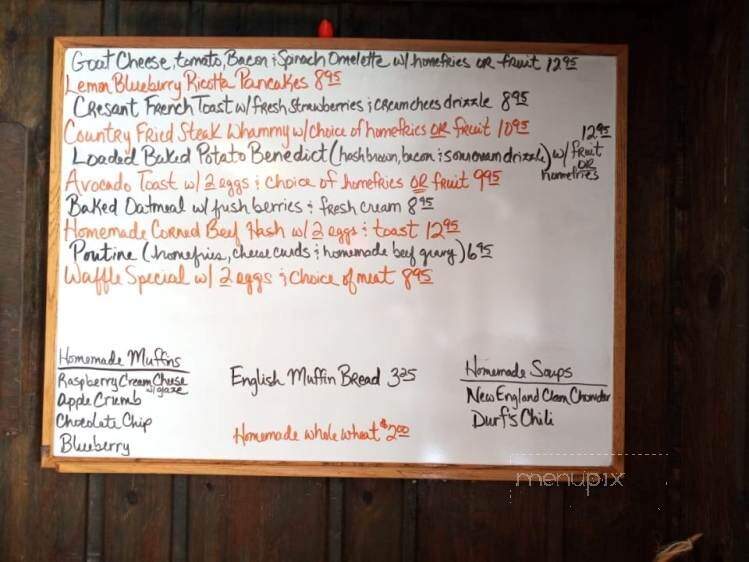 Goat Cheese, tomato, Bacon & Spinach Omelette w/ homefries OR fruit 12.95
Lemon Blueberry Ricotta Pancakes 8.95
Cresant French Toast w/ fresh strawberries & creamchees drizzle 8.95
Country Fried Steak Whammy w/ choice of homefries OR fruit 10.95
Loaded Baked Potato Benedict (hashbrown, bacon & sourcream drizzle) w/ fruit OR homefries 12.95
Avocado Toast w/ 2 eggs & choice of homefries OR fruit 9.95
Baked Oatmeal w/ fresh berries & fresh cream 8.95
Homemade Corned Beef Hash w/ 2 eggs & toast 12.95
Poutine (homefries, cheese curds & homemade beef gravy) 6.95
Waffle Special w/ 2 eggs & choice of meat 8.95
Homemade Muffins
Raspberry Cream Cheese
w/ glaze
Apple Crumb
Chocolate Chip
Blueberry
English Muffin Bread 3.25
Homemade whole wheat $2.00
Homemade Soups
New England Clam Chowder
Durf's Chili
menupix